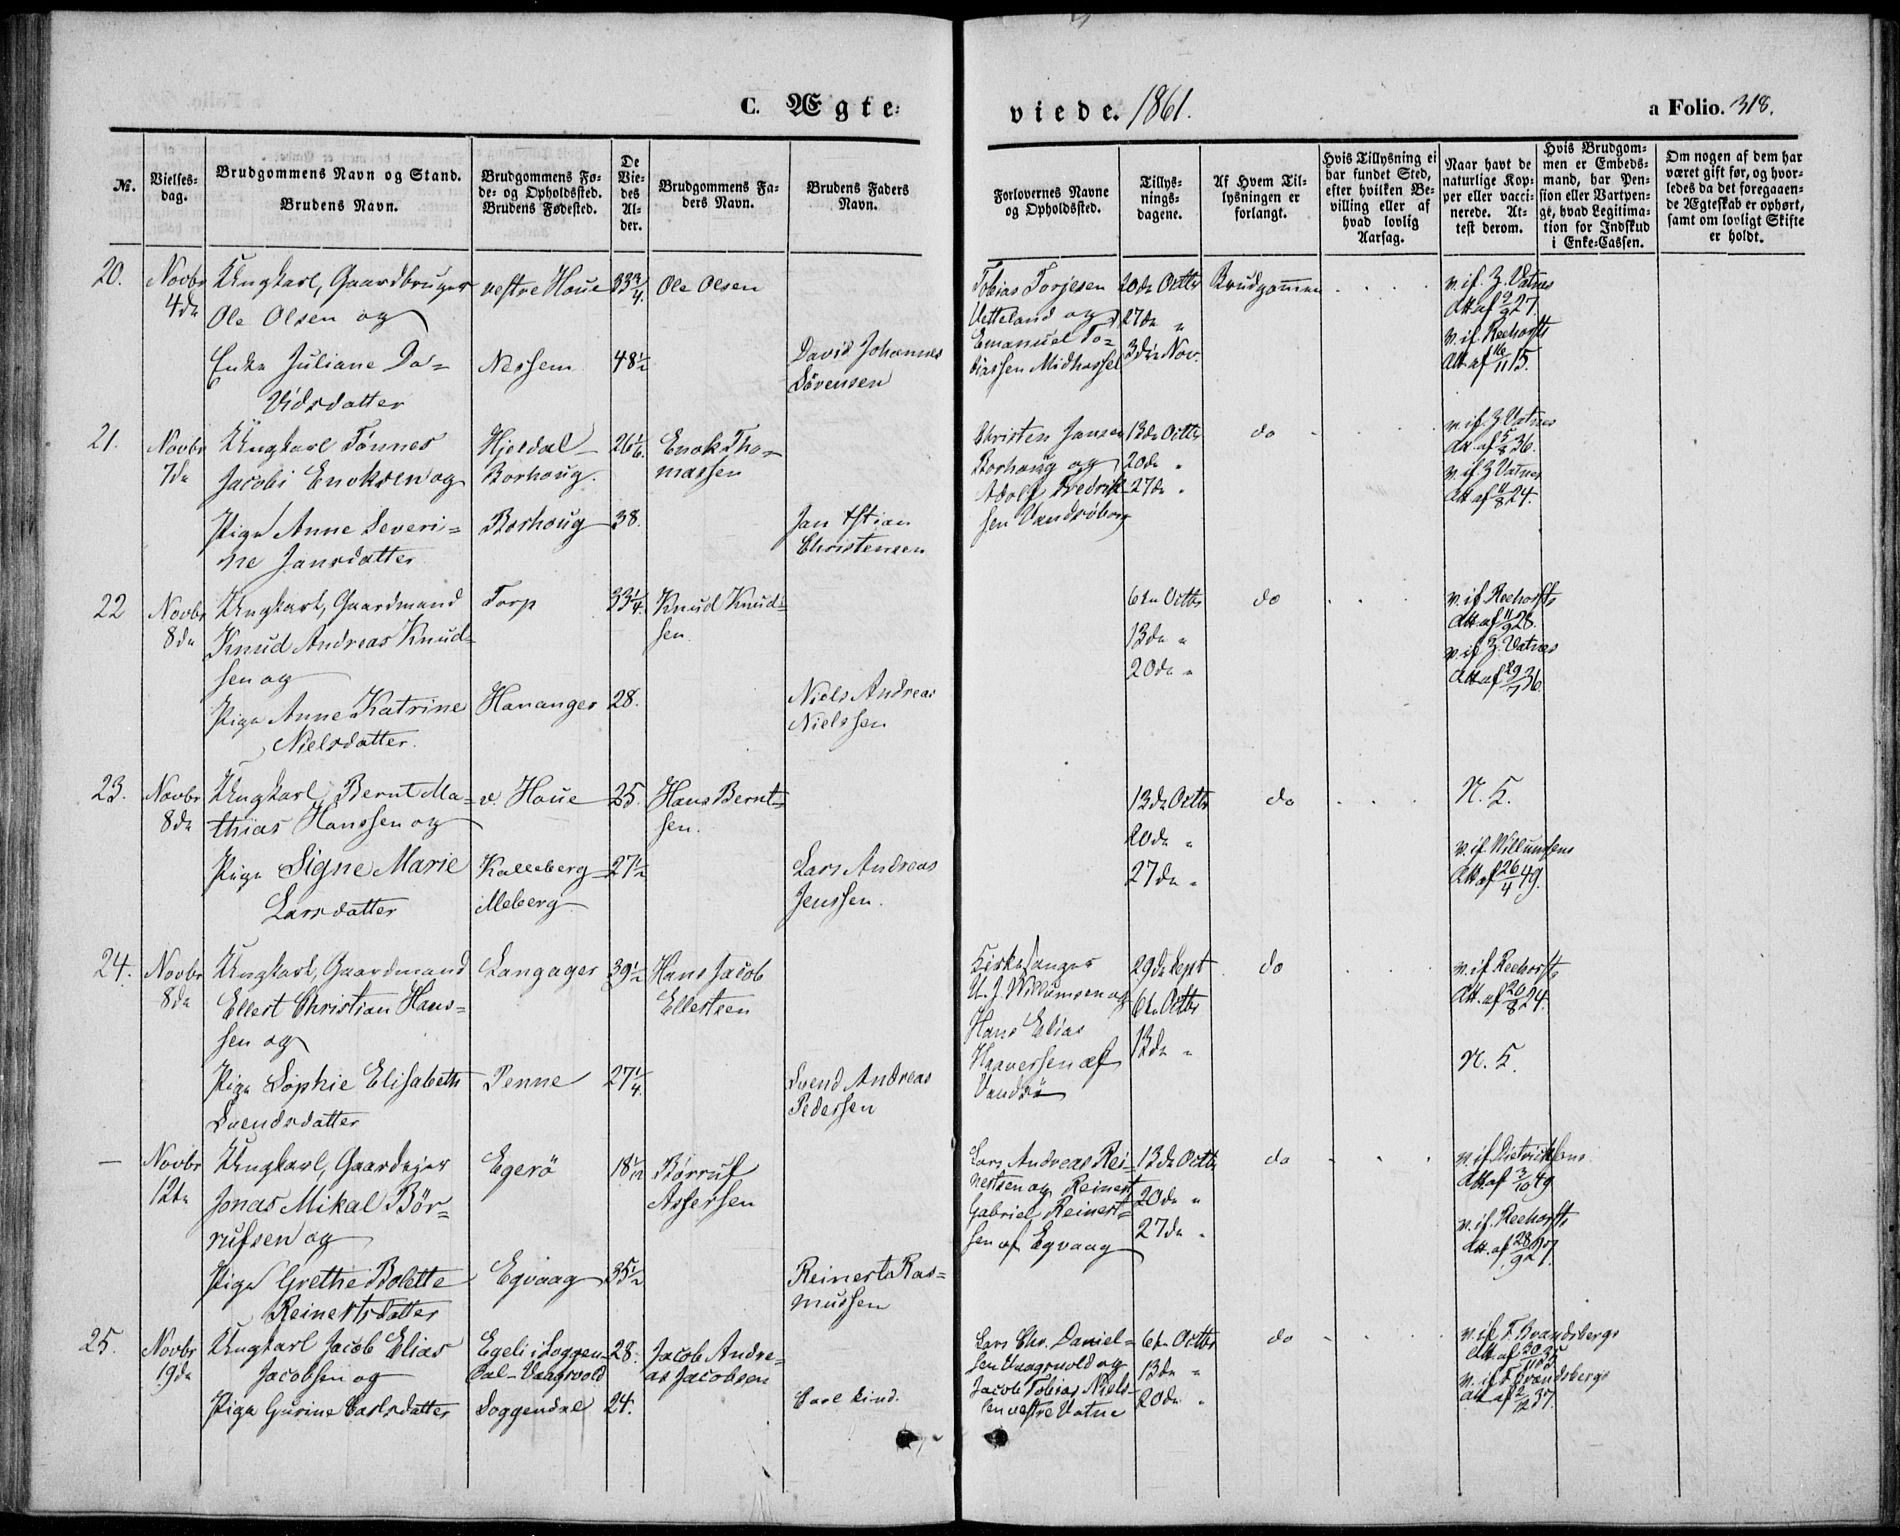 C. Ægte=
viede. 1861.
a Folio. 318.
No.
Vielses-
dag.
Brudgommens Navn og Stand.
Brudens Navn.
Brudgommens Fø-
de- og Opholdssted.
Brudens Fødested.
De
Vie-
des
Al-
der.
Brudgommens Fa-
ders Navn.
Brudens Faders
Navn.
Forlovernes Navne
og Opholdssted.
Tillys-
nings-
dagene.
Af Hvem Til-
lysningen er
forlangt.
Hvis Tillysning ei
har fundet Sted,
efter hvilken Be-
villing eller af
hvad lovlig
Aarsag.
Naar havt de
naturlige Kop-
per eller vacci-
nerede. At-
test derom.
Hvis Brudgom-
men er Embeds-
mand, har Pen-
sion eller Vartpen-
ge, hvad Legitima-
tion for Indskud
i Enke-Cassen.
Om nogen af dem har
været gift før, og hvor-
ledes da det foregaaen-
de Ægteskab er ophørt,
samt om lovligt Skifte
er holdt.
20.
Novbr
4de
Ungkarl, Gaardbruger
Ole Olsen og
Enke Juliane Da=
vidsdatter
vestre Houe
Nessem
33 3/4.
48 1/2
Ole Olsen
David Johannes
Sörensen
Tobias Torjesen
Vetteland og
Emanuel To=
biassen Midhassel
20de Octbr
27de "
3die Nov.
Brudgommen
v. if. Z. Vatnes
Att af 9/9 27.
v. if. Reehorsts
Att. af 16/11 15.
21.
Novbr
7de
Ungkarl Tönnes
Jacobi Enoksen og
Pige Anne Severi=
ne Jansdatter
Hjeldal_
Borhoug.
Borhoug
26 1/6.
38.
Enok Tho=
massen
Jan Xstian
Christensen
Christen Jansen
Borhoug og
Adolf Fredrik=
sen Vandsöborg
13de Octbr
20de "
27de "
do
v. if. Z. Vatnes
Att. af 5/8 36.
v. if. Z. Vatnes
Att af 11/8 24.
22
Novbr
8de
Ungkarl, Gaardmand
Knud Andreas Knud=
sen og
Pige Anne Katrine
Nielsdatter.
Torp
Hananger
33 1/4.
28.
Knud Knud=
sen.
Niels Andreas
Nielssen
6te Octbr
13de "
20de "
do
v. if. Reehorsts
Att. af 11/9 28.
v. if. Z. Vatnes
Att af 29/7 36.
23.
Novbr
8de
Ungkarl, Bernt Ma=
thias Hanssen og
Pige Signe Marie
Larsdatter
v. Houe
Kalleberg=
Meberg
25.
27 1/2
Hans Bernt=
sen.
Lars Andreas
Jenssen.
13de Octbr
20de "
27de "
do
N. K.
v. if. Willumsens
Att af 26/4 49.
24.
Novbr
8de
Ungkarl, Gaardmand
Ellert Christian Hans=
sen og
Pige Sophie Elisabeth
Svendsdatter
Langager
Penne
39 1/2
27 1/4.
Hans Jacob
Ellertsen
Svend Andreas
Pedersen
Kirkesanger
U. J. Willumsen og
Hans Elias
Haaversen af
Vandsö
29de Sept
6te Octbr
13de "
do
v. if. Reehorsts
Att. af 20/8 24.
N. K.
—
Novbr
12te
Ungkarl, Gaardejer
Jonas Mikal Bör=
rufsen og
Pige Grethe Bolette
Reinertsdatter
Egerö
Egvaag
18 1/2
35 1/2
Börruf
Assersen
Reinert Ras=
mussen
Lars Andreas Rei=
nertsen og Reinert
Gabriel Reinert=
sen af Egvaag
13de Octbr
20de "
27de "
do
v. if. Dietrichsons
Att. af 3/10 49
v. if. Reehorsts
Att. af 28/9 27.
25.
Novbr
19de
Ungkarl Jacob Elias
Jacobsen og
Pige Gurine Carlsdatter
Egeli i Soggen=
dal-Vaagsvold
Soggendal
28.
24.
Jacob Andre=
as Jacobsen
Carl Lind.
Lars Chr. Daniel=
sen Vaagsvold og
Jacob Tobias Niels=
sen vestre Vatne
6te Octbr
13de "
20de "
do
v. if. F. Brandsbergs
Att. af 30/11 35
v. if. F. Brandsbergs
Att af 2/12 37.